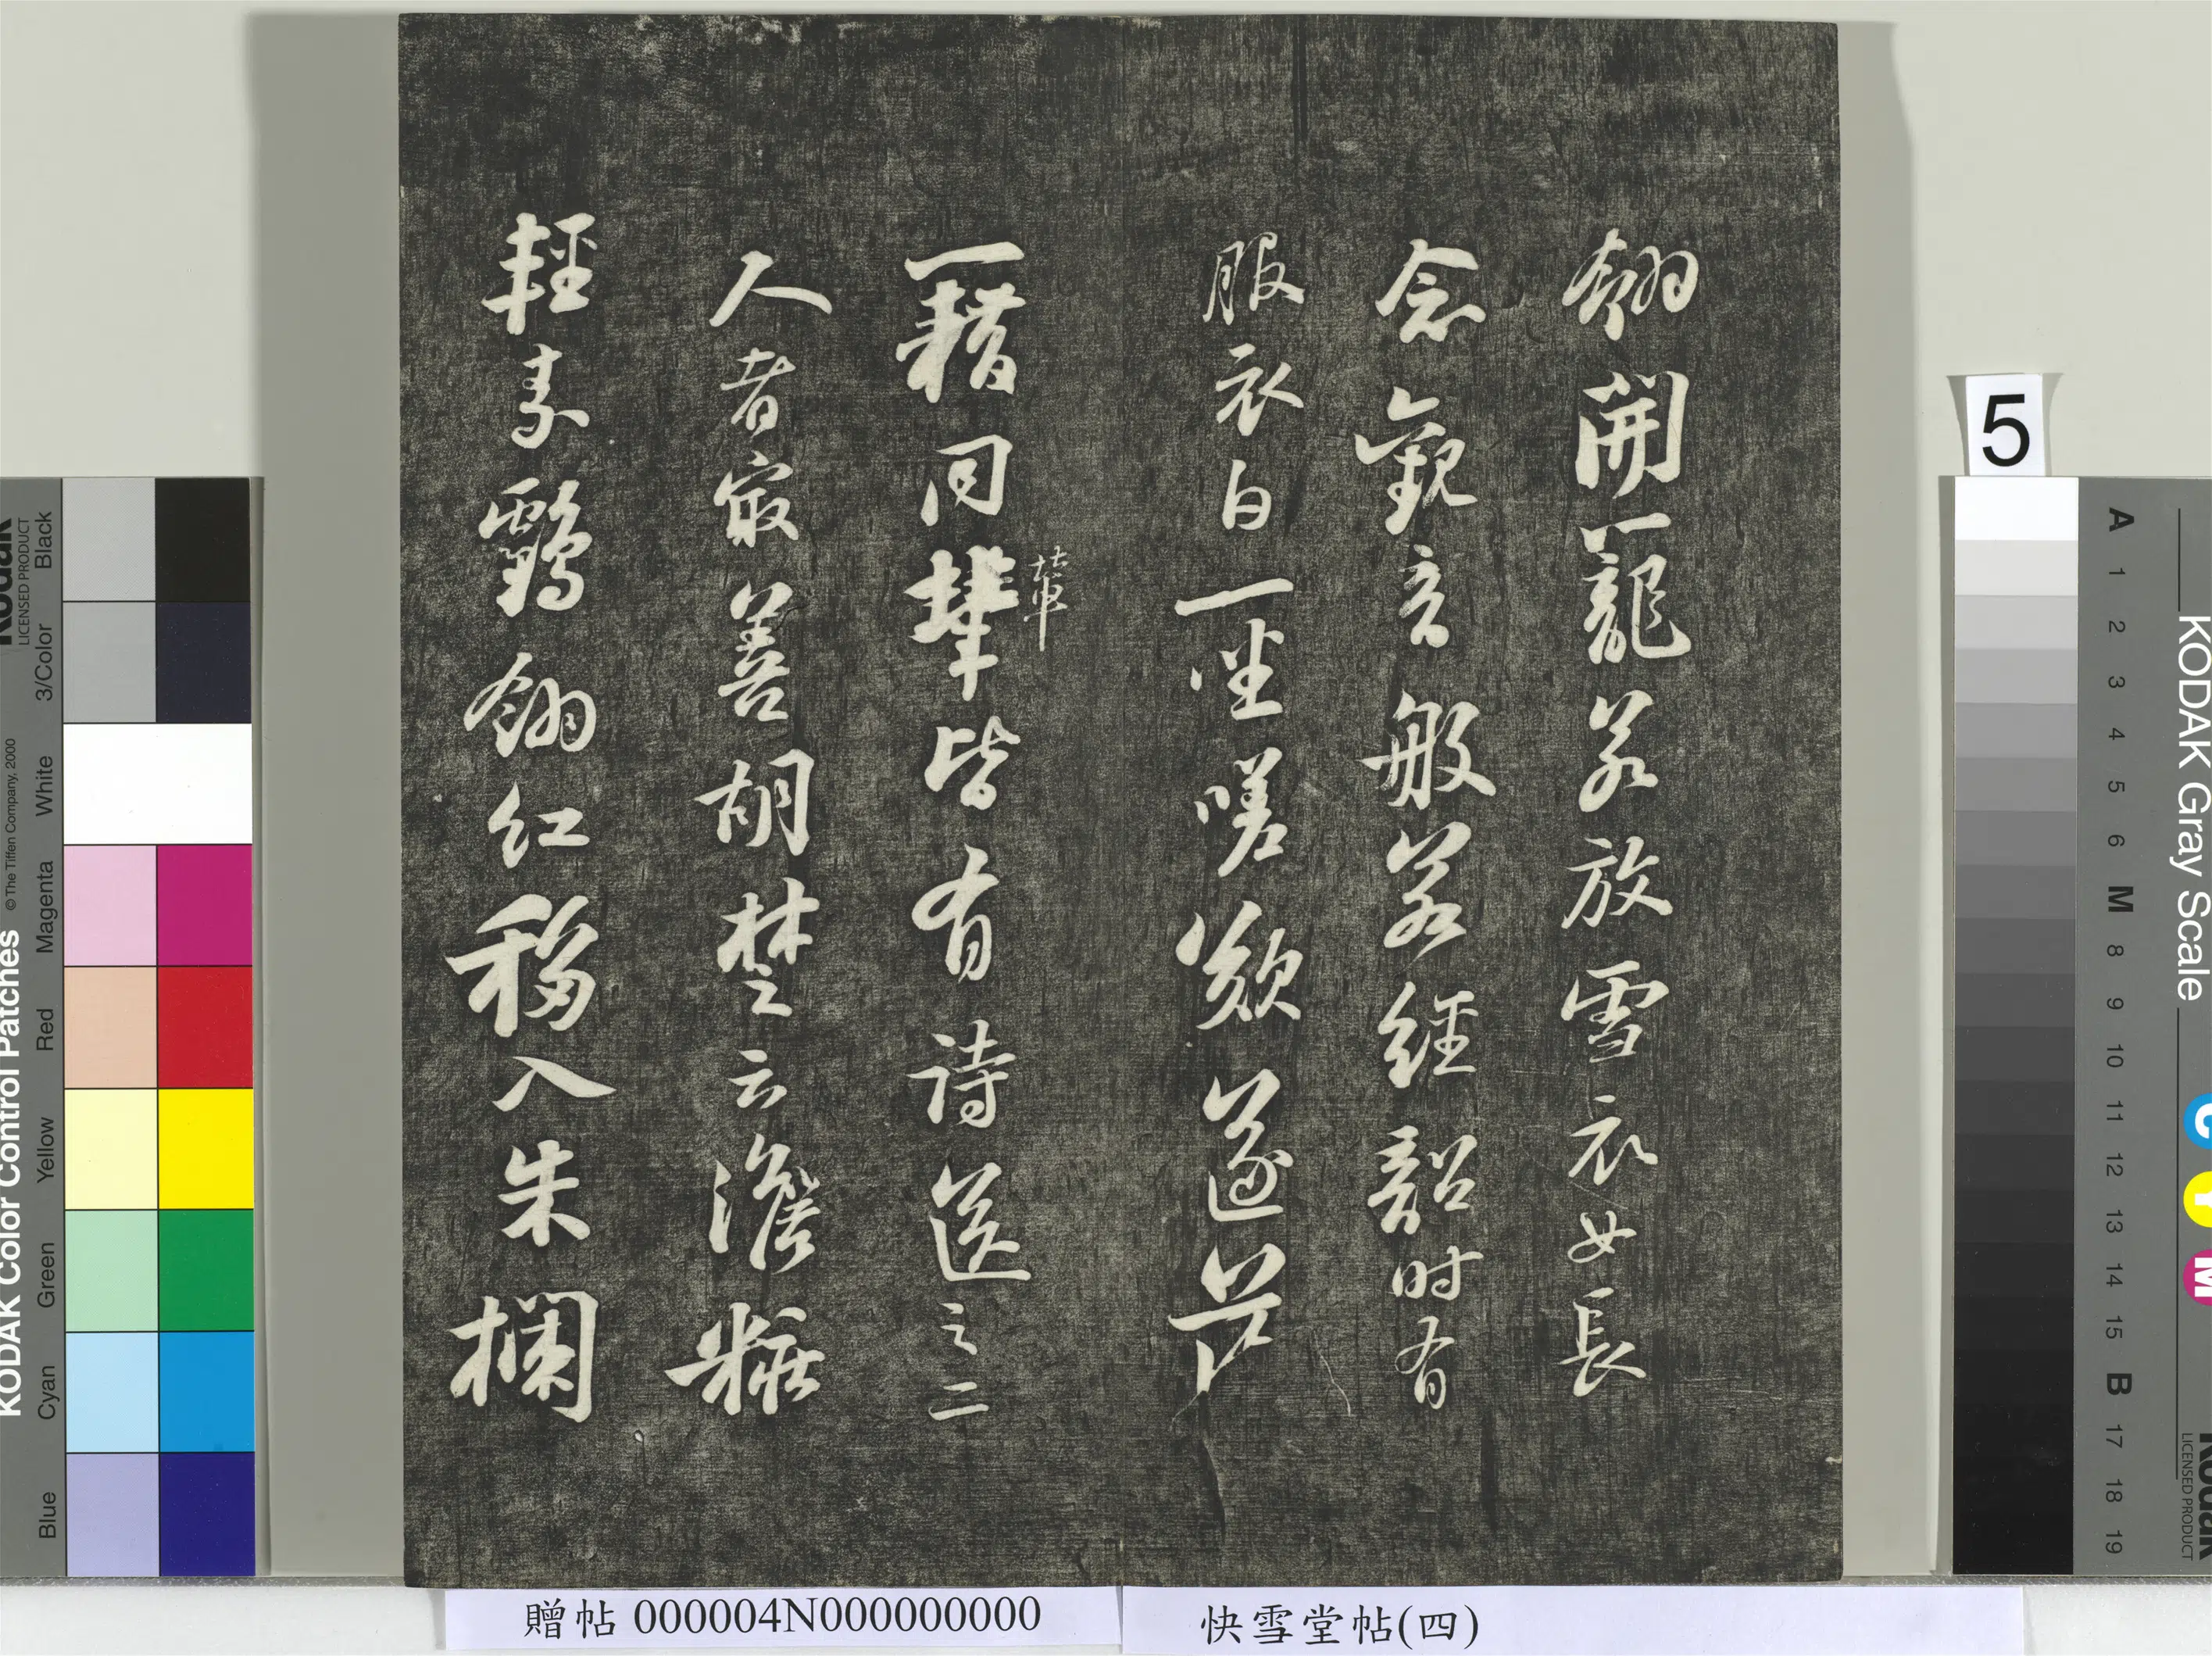 翎開籠若放雪衣女長
念觀音般若經韶時有
服衣白一坐嗟歎遂落
籍同輩皆有詩送之二
輩
人者最善胡楚云澹粧
輕素鶴翎紅移入朱欄
5
贈帖 000004N000000000
快雪堂帖(四)
KODAK Color Control Patches
© The Tiffen Company, 2000
Kodak
LICENSED PRODUCT
Blue Cyan Green Yellow Red Magenta White 3/Color Black
KODAK Gray Scale
A 1 2 3 4 5 6 M 8 9 10 11 12 13 14 15 B 17 18 19
C Y M
Kodak
LICENSED PRODUCT